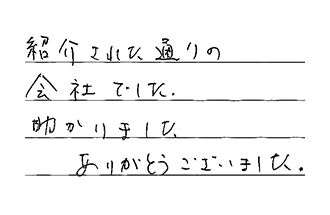 紹介された通りの
会社でした.
助かりました
ありがとうございました.